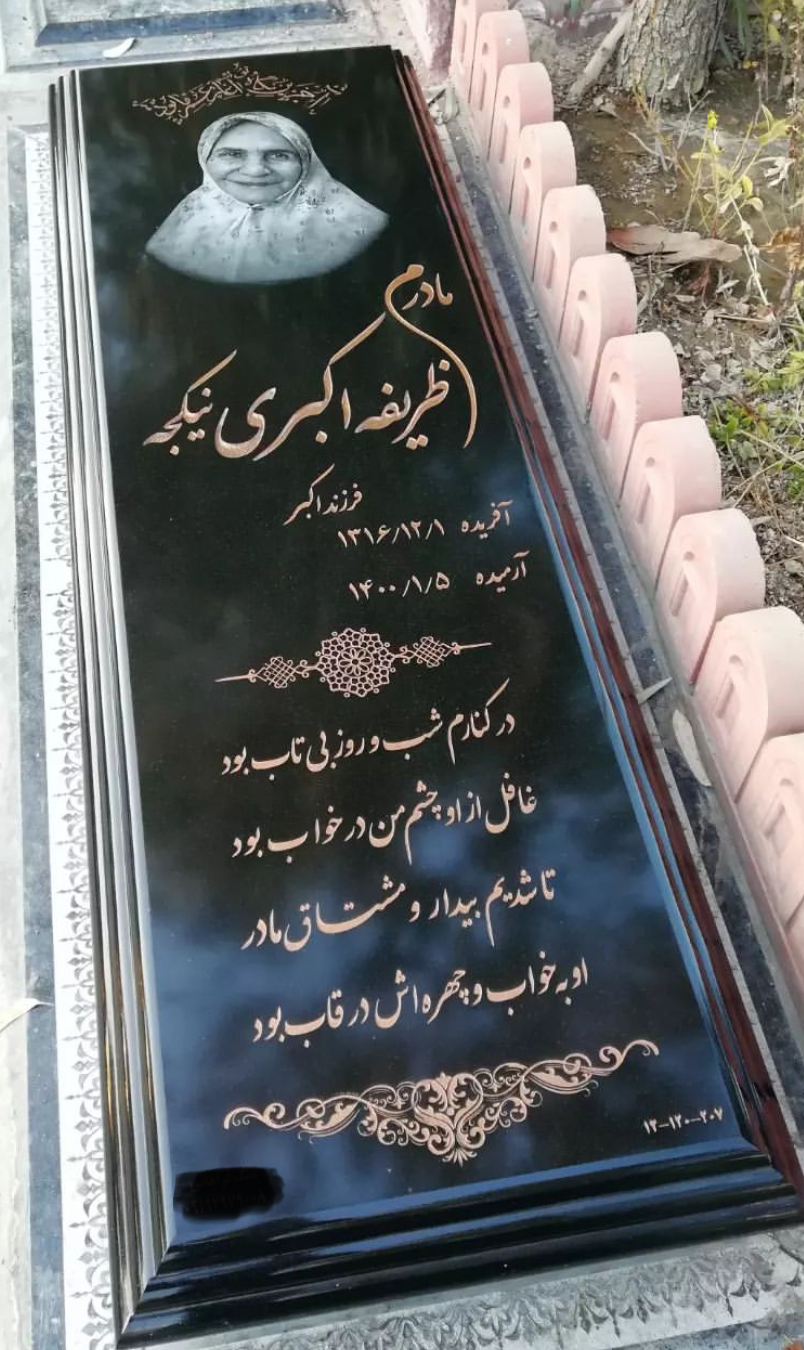 مادرم
ظریفه اکبری نیکجه
فرزند اکبر
آفریده ۱۳۱۶/۱۲/۱
آرمیده ۱۴۰۰/۱/۵
در کنارم شب و روز بی تاب بود
غافل از او چشم من در خواب بود
تا شدیم بیدار و مشتاق مادر
او به خواب و چهره اش در قاب بود
۱۲-۱۲۰-۲۰۷